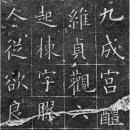 九成宮醴
維貞觀六
起棟宇勝
人從欲良